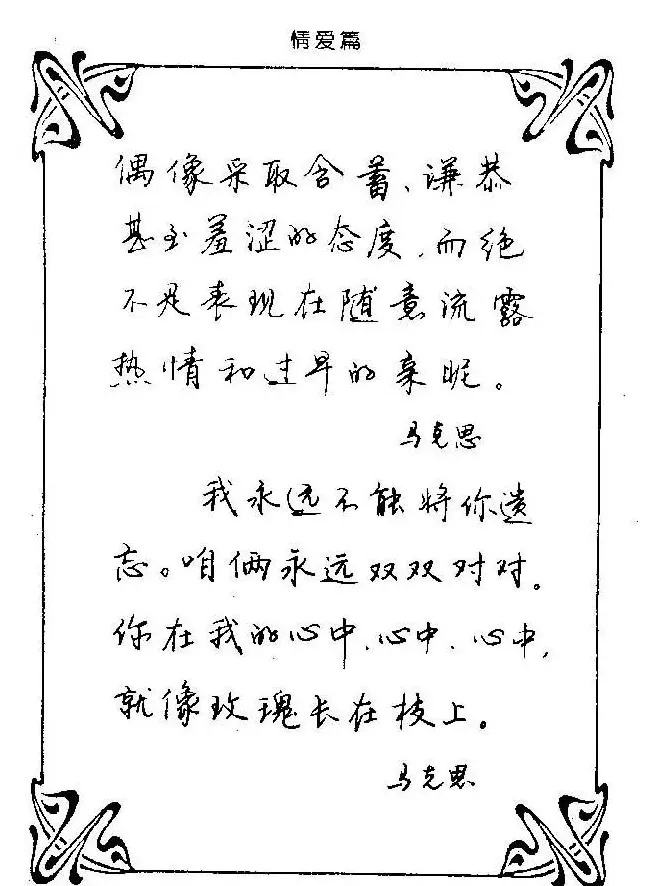 情爱篇
偶像采取含蓄、谦恭
甚至羞涩的态度,而绝
不是表现在随意流露
热情和过早的亲昵。
马克思
我永远不能将你遗
忘。咱俩永远双双对对。
你在我的心中、心中、心中,
就像玫瑰长在枝上。
马克思